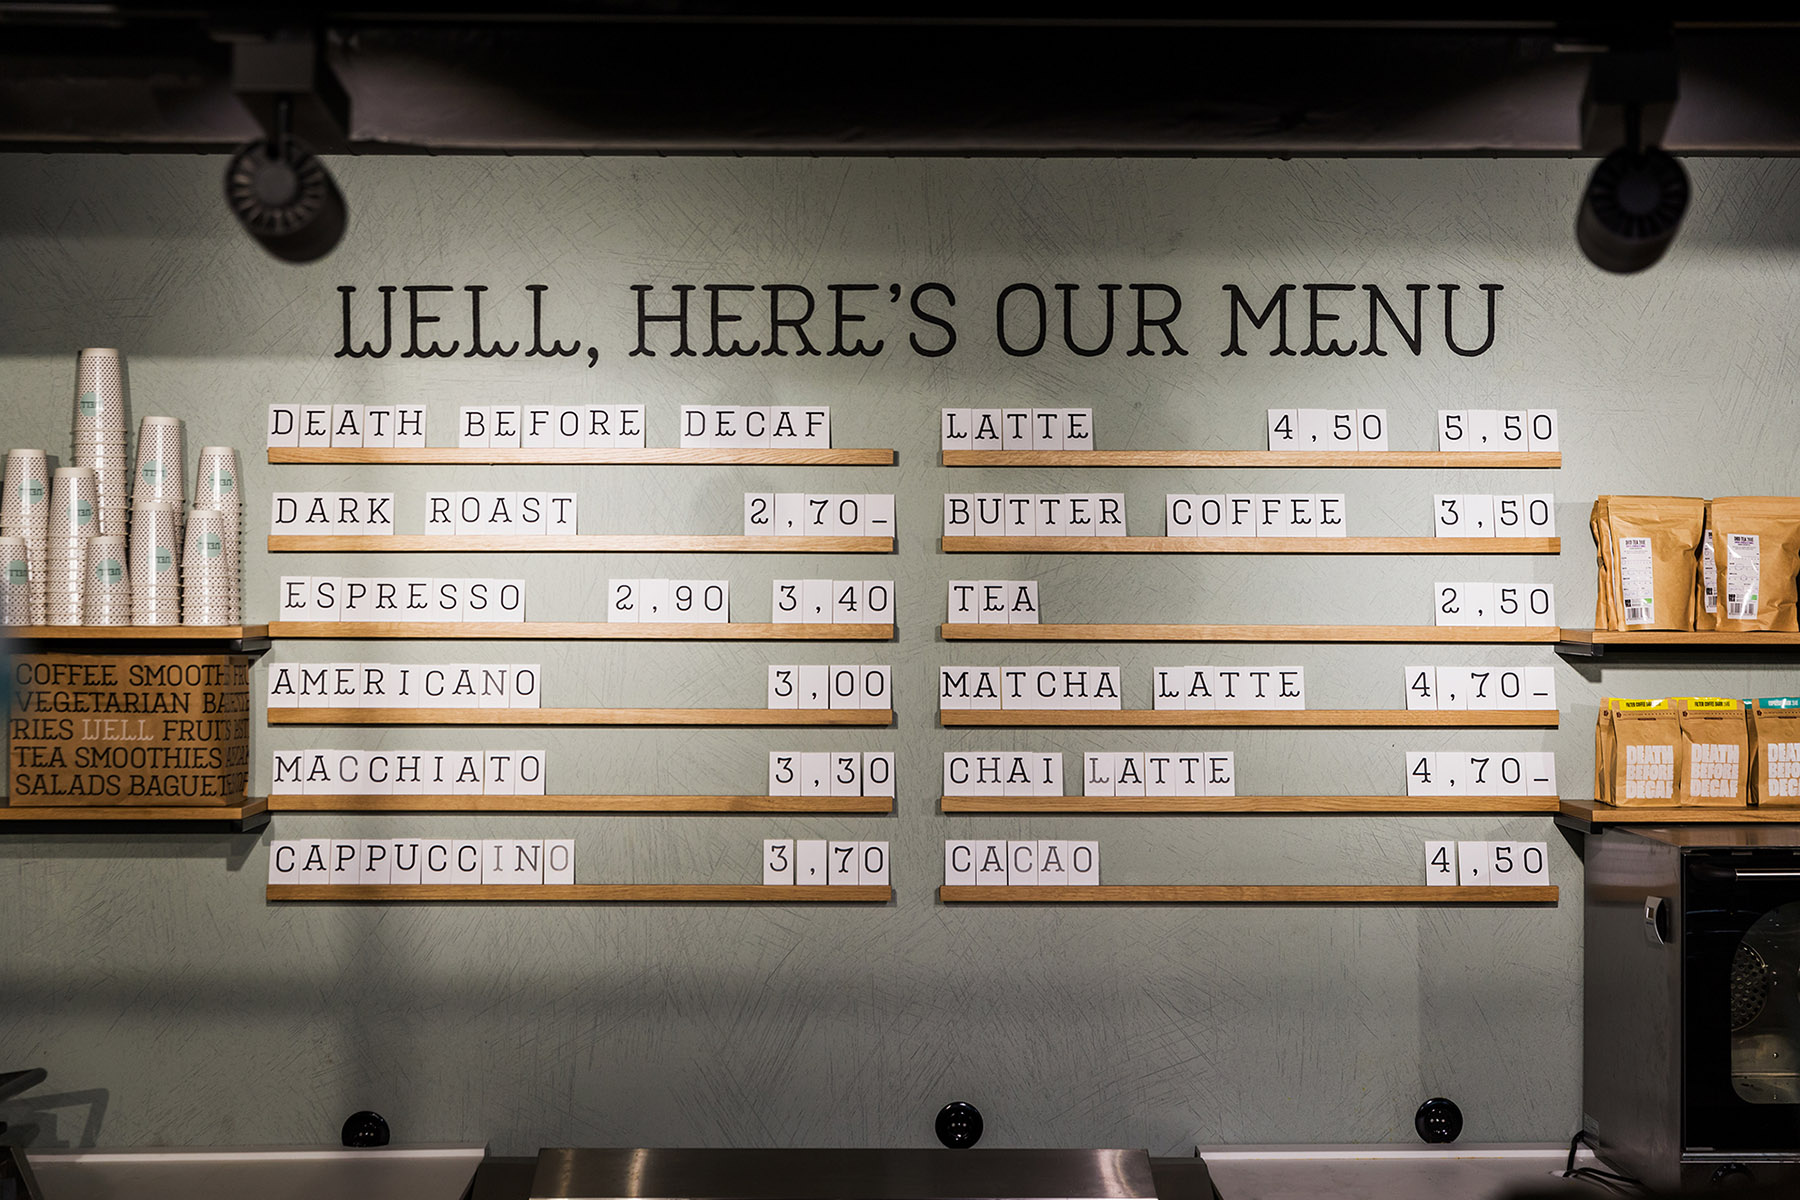 WELL, HERE'S OUR MENU
DEATH BEFORE DECAF
DARK ROAST 2,70_
ESPRESSO 2,90 3,40
AMERICANO 3,00
MACCHIATO 3,30
CAPPUCCINO 3,70
LATTE 4,50 5,50
BUTTER COFFEE 3,50
TEA 2,50
MATCHA LATTE 4,70_
CHAI LATTE 4,70_
CACAO 4,50
COFFEE SMOOTH
VEGETARIAN BA
RIES WELL FRUITS
TEA SMOOTHIES
SALADS BAGUET
DEATH
BEFORE
DECAF
DEATH
BEFORE
DECAF